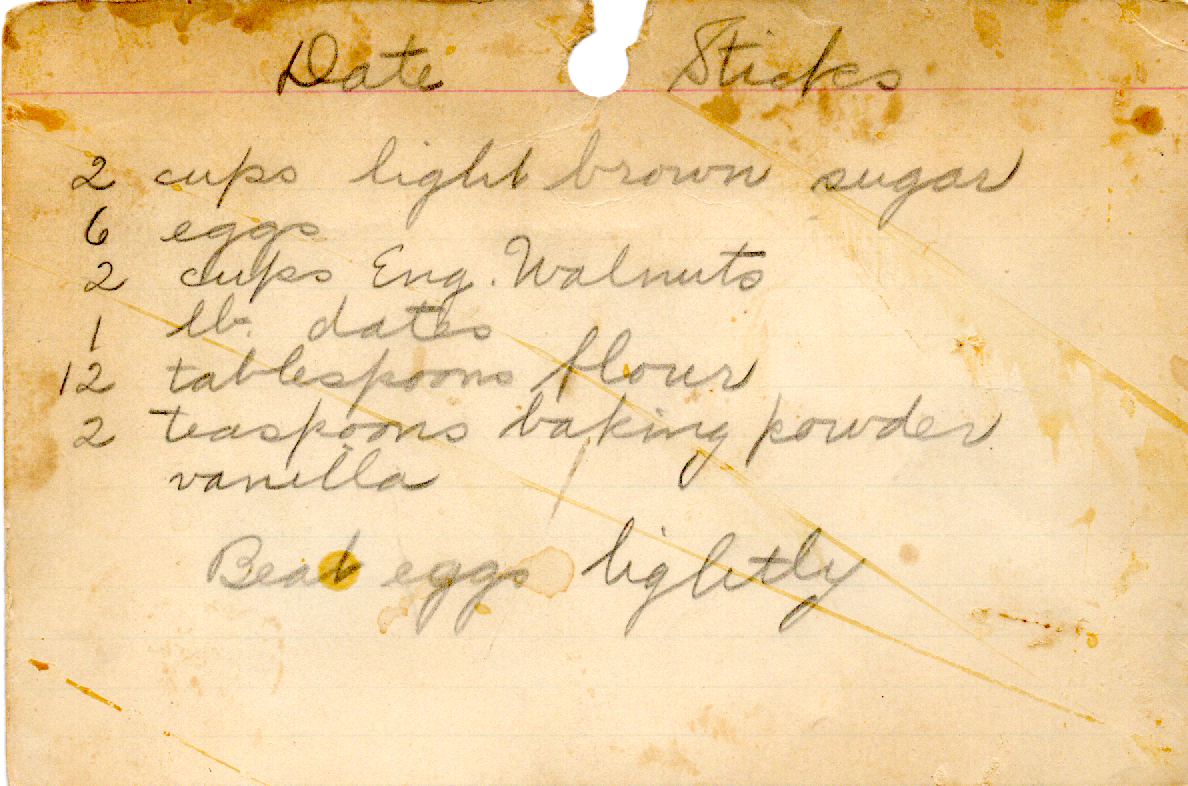 Date Sticks
2 cups light brown sugar
6 eggs
2 cups Eng. Walnuts
1 lb. dates
12 tablespoons flour
2 teaspoons baking powder
vanilla
Beat eggs lightly